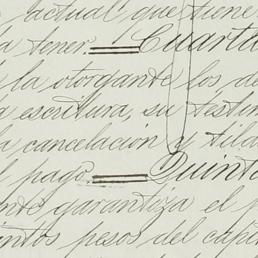 actual que tiene
a tener. Cuarta
la otorgante los de
a escritura, su testim
la cancelación y tild
l pago. Quinta
nte garantiza el p
entos pesos del capi